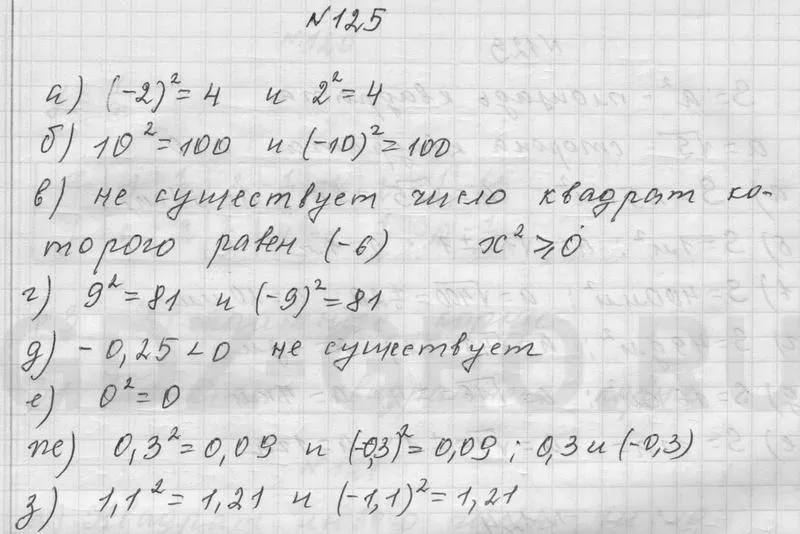 №125
а) (-2)² = 4 и 2² = 4
б) 10² = 100 и (-10)² = 100
в) не существует число квадрат ко-
торого равен (-6) x² ⩾ 0
г) 9² = 81 и (-9)² = 81
д) - 0,25 < 0 не существует
е) 0² = 0
ж) 0,3² = 0,09 и (-0,3)² = 0,09 ; 0,3 и (-0,3)
з) 1,1² = 1,21 и (-1,1)² = 1,21